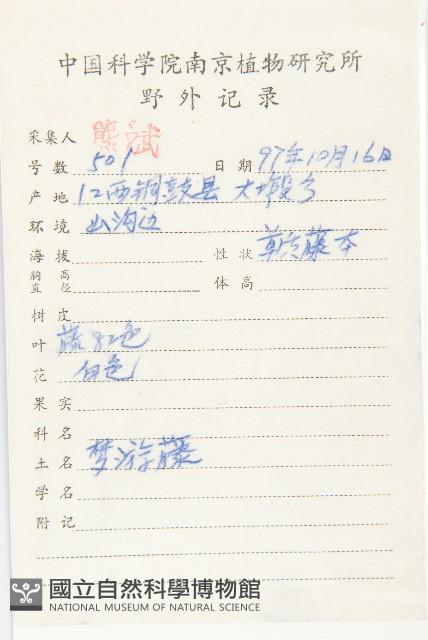 中国科学院南京植物研究所
野外记录
采集人 熊 斌
号数 501 日期 97年10月16日
产地 江西铜鼓县 大塅乡
环境 山沟边
海拔 性状 草质藤本
胸高直径 体高
树皮
叶 藤红色
花 白色
果实
科名
土名 梦游藤
学名
附记
國立自然科學博物館
NATIONAL MUSEUM OF NATURAL SCIENCE